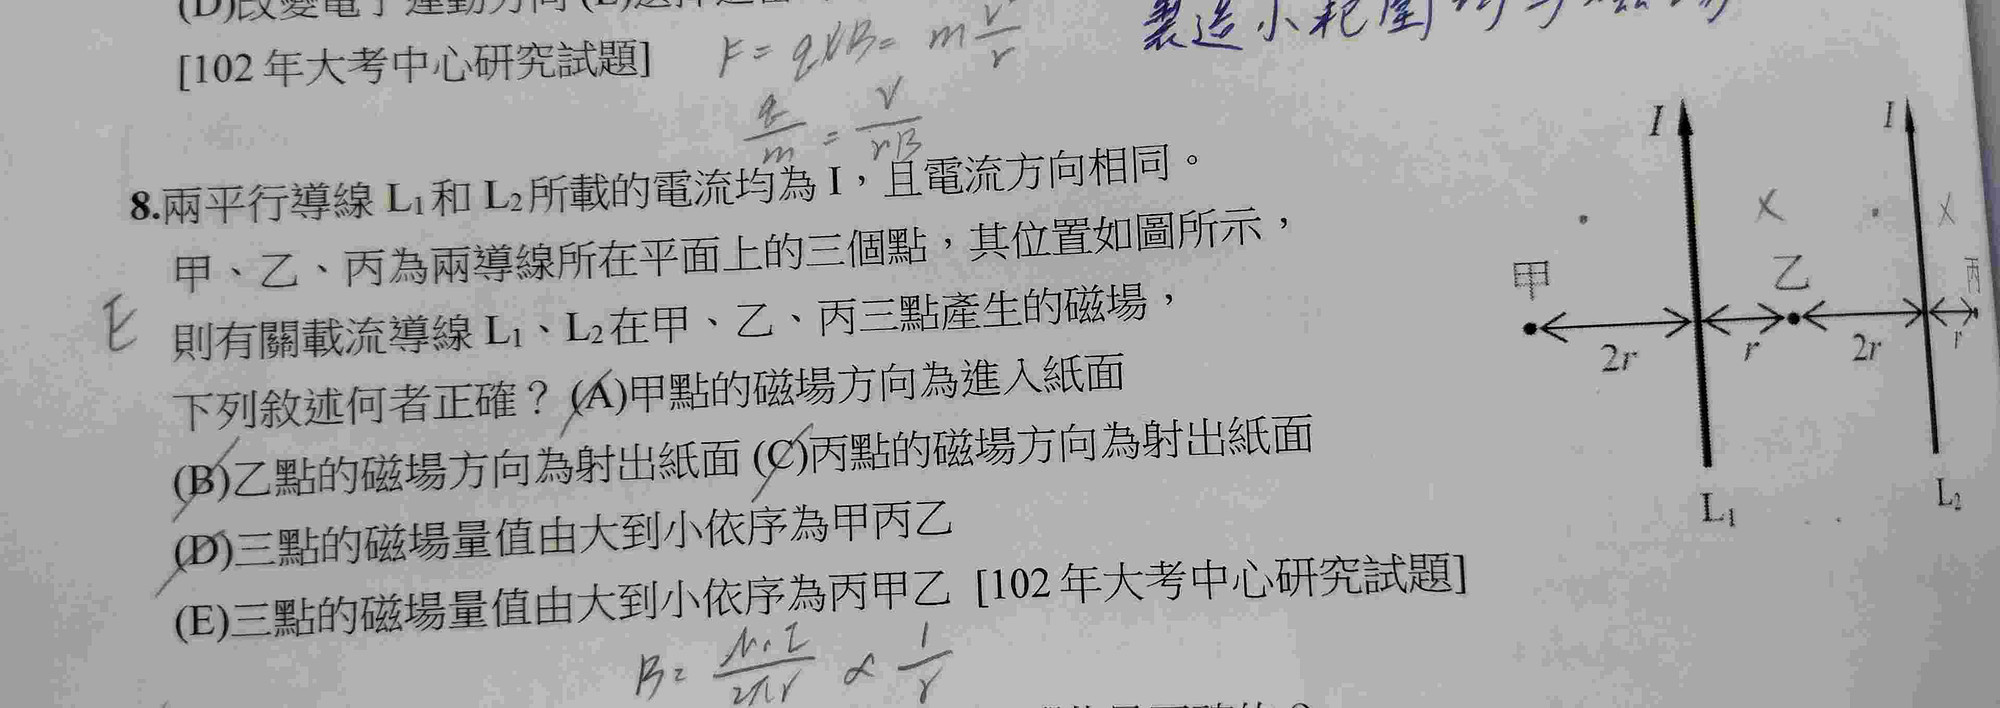 [102 年大考中心研究試題]
F = qVB = m
q/m = V/rB
製造小範圍
8.兩平行導線 L₁和 L₂所載的電流均為 I，且電流方向相同。
甲、乙、丙為兩導線所在平面上的三個點，其位置如圖所示，
E 則有關載流導線 L₁、L₂在甲、乙、丙三點產生的磁場，
下列敘述何者正確？(A)甲點的磁場方向為進入紙面
(B)乙點的磁場方向為射出紙面 (C)丙點的磁場方向為射出紙面
(D)三點的磁場量值由大到小依序為甲丙乙
(E)三點的磁場量值由大到小依序為丙甲乙 [102 年大考中心研究試題]
I I
X X
甲 乙 丙
2r r 2r r
L₁ L₂